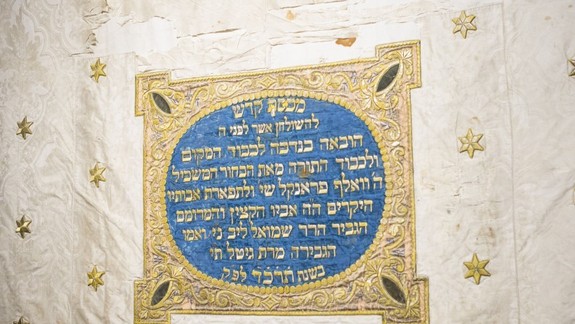 מכסה קדש
להשולחן אשר לפני ה
הובאה בנדבה לכבוד המקום
ולכבוד התורה מאת הבחור המשכיל
ה' וואלף פראנקל שי ולתפארת אבותיו
היקרים הה אביו הקצין והמרומם
הגביר הרר שמואל ליב ני ואמו
הגבירה מרת גיטל תי
בשנת תרכד לפק